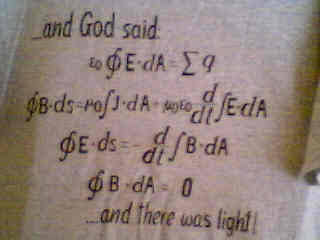 ...and God said:
ε₀ ∮ E · dA = ∑ q
∮ B · ds = μ₀ ∫ J · dA + μ₀ε₀ d/dt ∫ E · dA
∮ E · ds = - d/dt ∫ B · dA
∮ B · dA = 0
...and there was light!